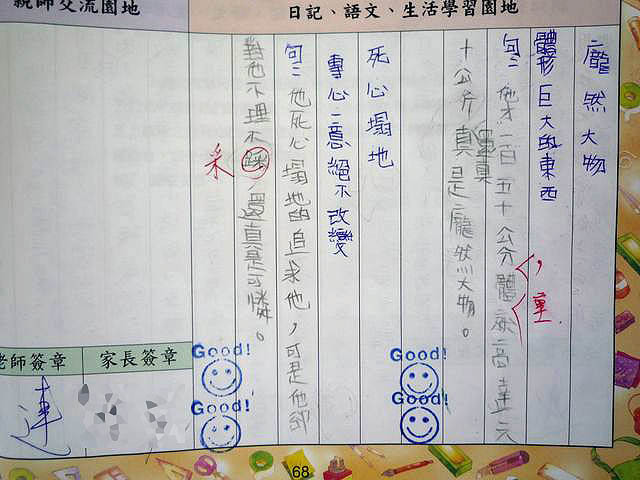 親師交流園地
日記、語文、生活學習園地
龐然大物
體形巨大的東西
句：他才一百五十公分體高達九
，
重
十公斤還真是龐然大物。
死心塌地
專心一意絕不改變
句：他死心塌地的追求他，可是他卻
對他不理不踩，還真是可憐。
采
Good!
Good!
Good!
Good!
老師簽章
家長簽章
連
68